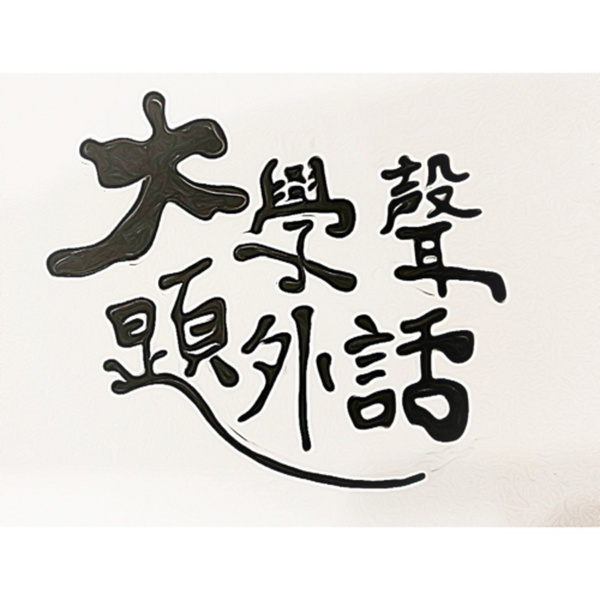 大學聲
題外話